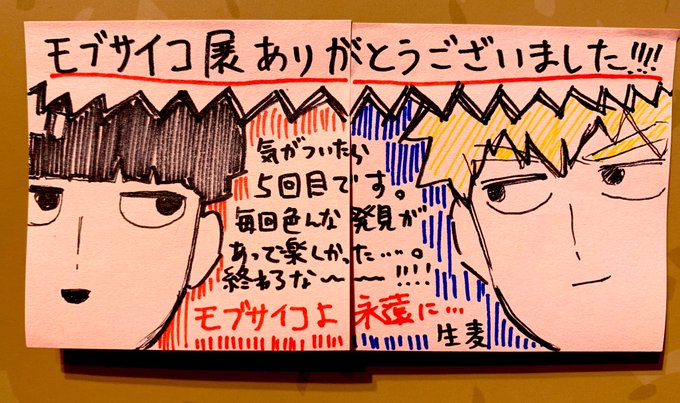 モブサイコ展ありがとうございました!!!!
気がついたら
5回目です。
毎回色んな発見が
あって楽しかった……。
終わるな〜〜〜!!!!
モブサイコよ永遠に…
生麦